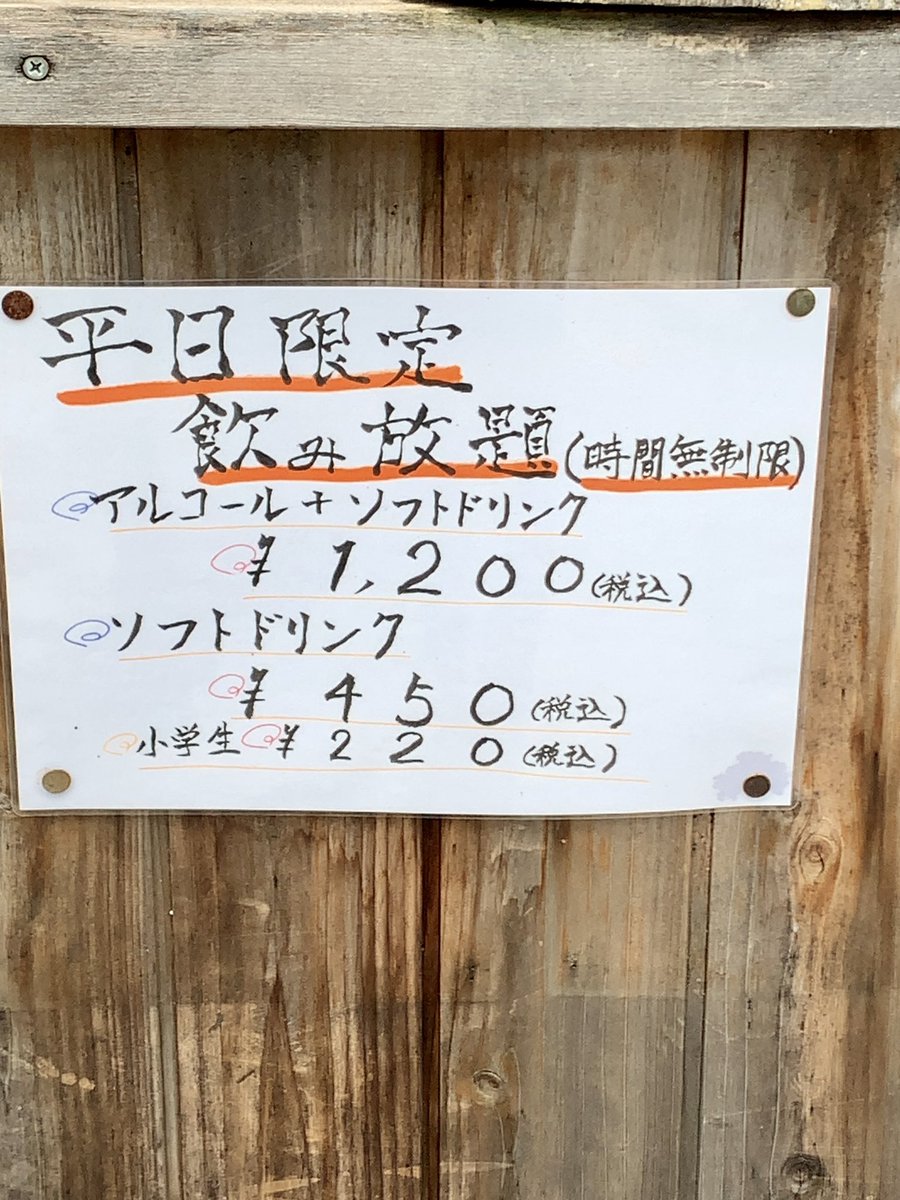 平日限定
飲み放題(時間無制限)
アルコール+ソフトドリンク
¥1,200(税込)
ソフトドリンク
¥450(税込)
小学生¥220(税込)